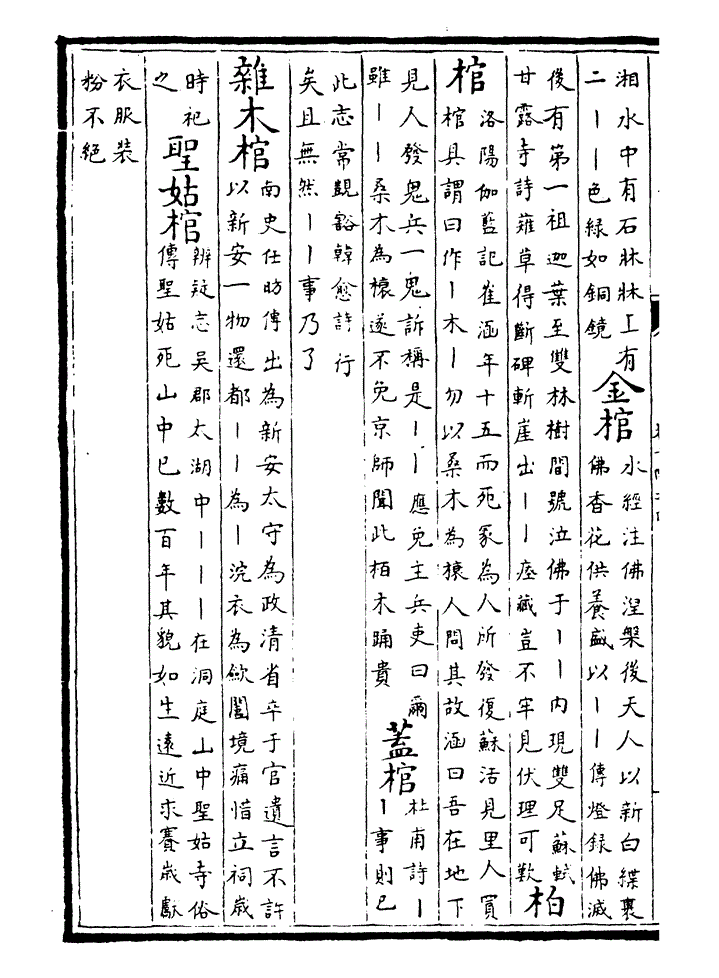 湘水中有石牀牀上有
二丨丨色緑如銅鏡
金棺
水經注佛涅槃後天人以新白緤裹
佛香花供養盛以丨丨傳燈録佛滅
後有第一祖迦葉至雙林樹間號泣佛于丨丨内現雙足蘇軾
甘露寺詩薙草得斷碑斬崖出丨丨瘞藏豈不牢見伏理可歎
柏
棺
洛陽伽藍記崔涵年十五而死冢為人所發復蘇活見里人買
棺具謂曰作丨木丨勿以桑木為榱人問其故涵曰吾在地下
見人發鬼兵一鬼訴稱是丨丨應免主兵吏曰爾
雖丨丨桑木為榱遂不免京師聞此栢木踊貴
蓋棺
杜甫詩丨
丨事則已
此志常覬豁韓愈詩行
矣且無然丨丨事乃了
雜木棺
南史任昉傳出為新安太守為政清省卒于官遺言不許
以新安一物還都丨丨為丨浣衣為歛闔境痛惜立祠歳
時祀
之
聖姑棺
辨疑志吳郡太湖中丨丨丨在洞庭山中聖姑寺俗
傳聖姑死山中已數百年其貌如生遠近求賽歳獻
衣服裝
粉不絶